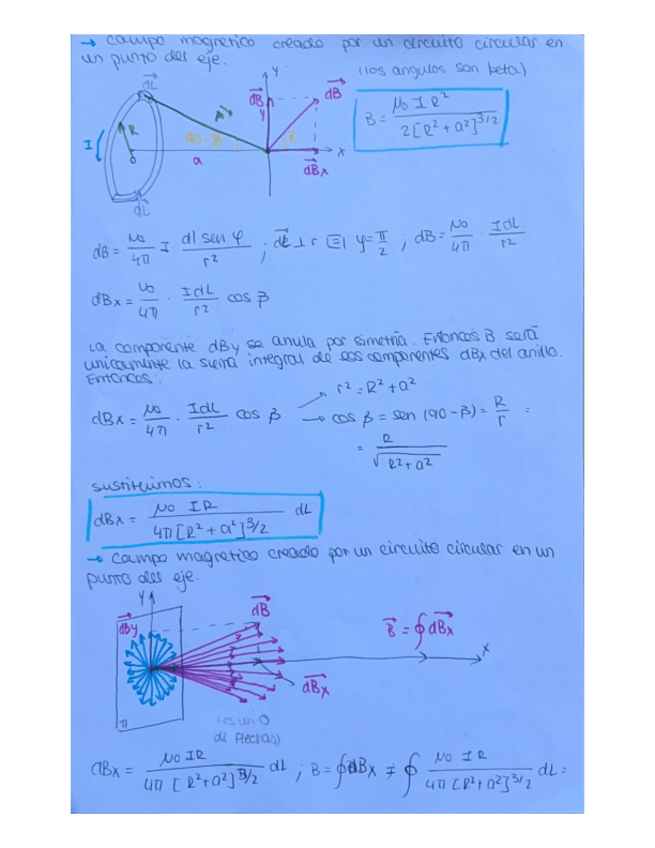 → campo magnetico creado por un circuito circular en
un punto del eje.
(los angulos son beta)
dL
dB
Y
dB
y
r
R
90-β
β
I
a
x
dBx
dL
B = μ0 I R² / 2[R² + a²]^3/2
dB = μ0/4π I dl sen φ / r² ; dL ⊥ r ∃| φ = π/2 ; dB = μ0/4π · IdL/r²
dBx = μ0/4π · IdL/r² cos β
La componente dBy se anula por simetria. Entonces B será
unicamente la suma integral de los componentes dBx del anillo.
Entonces:
r² = R² + a²
dBx = μ0/4π · IdL/r² cos β → cos β = sen (90 - β) = R/r =
= R / √R² + a²
sustituimos:
dBx = μ0 I R / 4π[R² + a²]^3/2 dL
→ campo magnetico creado por un circuito circular en un
punto del eje.
Y
dBy
dB
B = ∮ dBx
x
dBx
π
(es un O
de flechas)
dBx = μ0 I R / 4π [R² + a²]^3/2 dL ; B = ∮ dBx = ∮ μ0 I R / 4π [R² + a²]^3/2 dL =